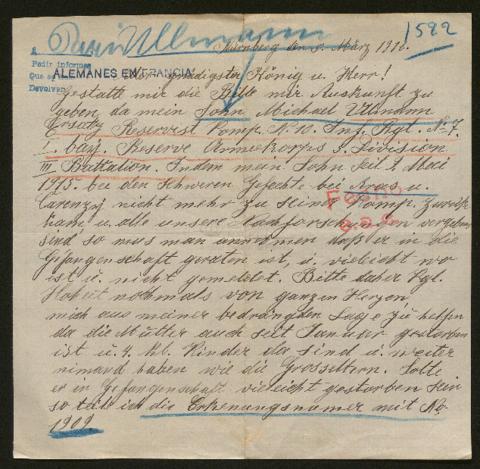 Ullmann
1592
Nürnberg den 8. März 1916.
Pedir informes
ALEMANES EN FRANCIA
Devolver
gnädigster König u. Herr!
Gestatte mir die Bitte mir Auskunft zu
geben da mein Sohn Michael Ullmann
Ersatz Reservist Komp. N. 10. Inf. Rgt. No 7.
I. bay. Reserve Armeekorps 5. Division
III Battalion. Indem mein Sohn seit 8 Mai
1915. bei den Schweren Gefechte bei Aras u.
Carenzy nicht mehr zu seiner Komp. zurück
kam u. alle unsere Nachforschungen vergebens
sind so mus man annemen daß er in die
Gefangenschaft geraten ist, u. vieleicht wo
ist u. nicht gemeldet. Bitte daher Kgl.
Hoheit nochmals von ganzen Herzen
mich aus meiner bedrängden Lage zu helfen
da die Mutter auch seit Januar gestorben
ist u. 4. kl. Kinder da sind u. weiter
niemand haben wie die Grosseltern. Solte
er in Gefangenschaft vieleicht gestorben sein
so teile ich die Erkenungsnamer mit No
1909.